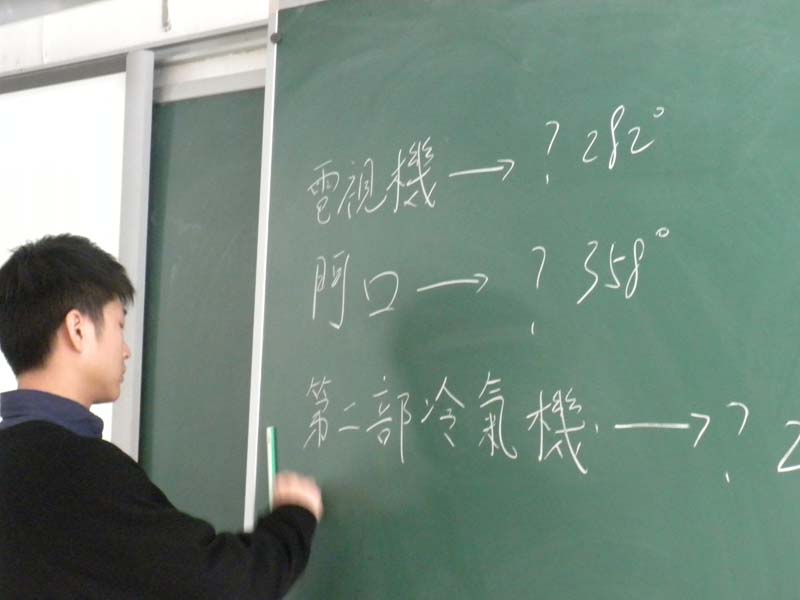 電視機 → ? 282°
門口 → ? 358°
第二部冷氣機 → ? 2